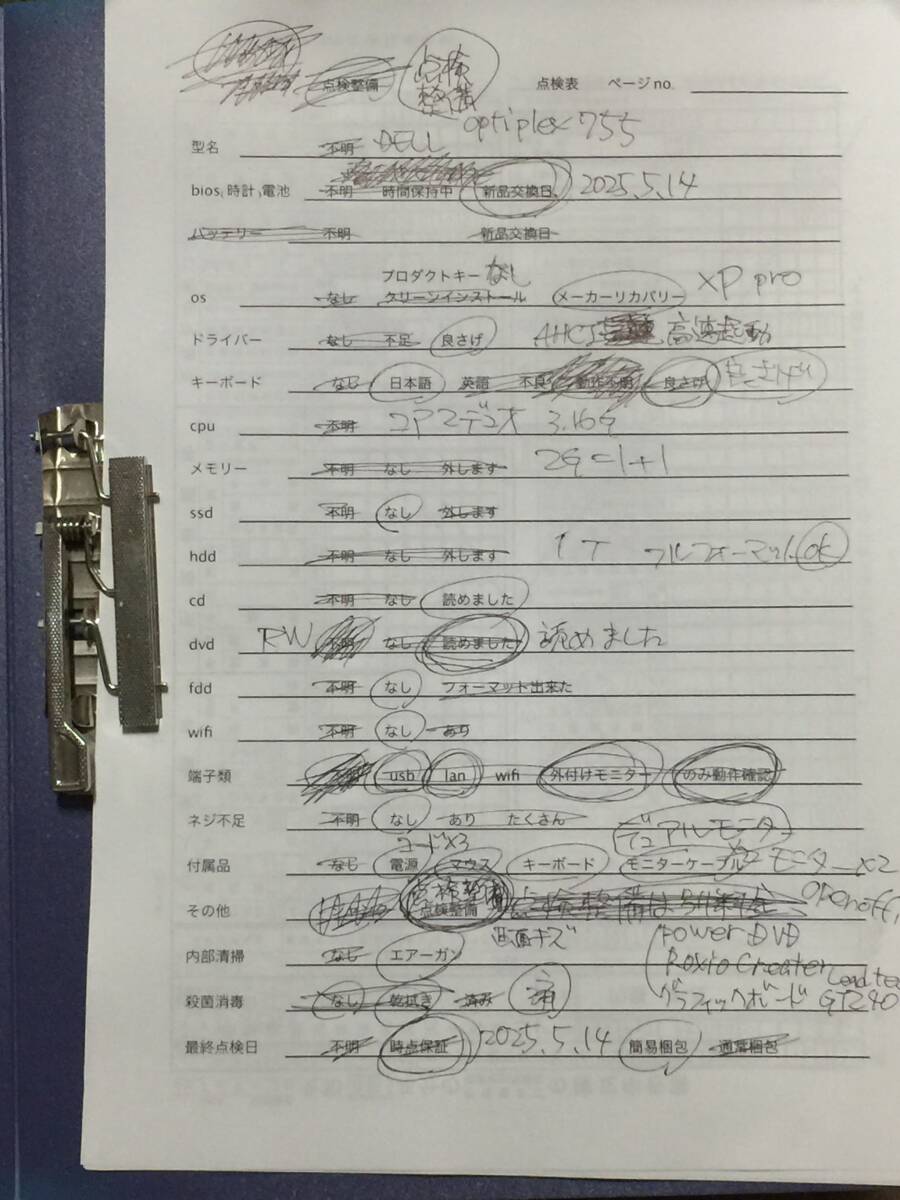 点検整備 点検整備 点検表 ページno.
型名 不明 DELL optiplex 755
bios,時計,電池 不明 時間保持中 新品交換日 2025.5.14
バッテリー 不明 新品交換日
プロダクトキー なし
os なし クリーンインストール メーカーリカバリー XP pro
ドライバー なし 不足 良さげ AHCI 高速起動
キーボード なし 日本語 英語 不良 動作不明 良さげ 良さげ
cpu 不明 コア2デュオ 3.16g
メモリー 不明 なし 外します 2g=1+1
ssd 不明 なし 外します
hdd 不明 なし 外します 1T フルフォーマット ok
cd 不明 なし 読めました
dvd RW 不明 なし 読めました 読めました
fdd 不明 なし フォーマット出来た
wifi 不明 なし あり
端子類 不明 usb lan wifi 外付けモニター のみ動作確認
ネジ不足 不明 なし あり たくさん デュアルモニター
コード×3
付属品 なし 電源 マウス キーボード モニターケーブル ×2 モニター×2
点検整備 openoff
その他 点検整備 点検整備は別料金
画面キズ Power DVD
内部清掃 なし エアーガン Roxio Creater
殺菌消毒 なし 乾拭き 済み 済 グラフィックボード Leadte GT240
最終点検日 不明 時点保証 2025.5.14 簡易梱包 通常梱包